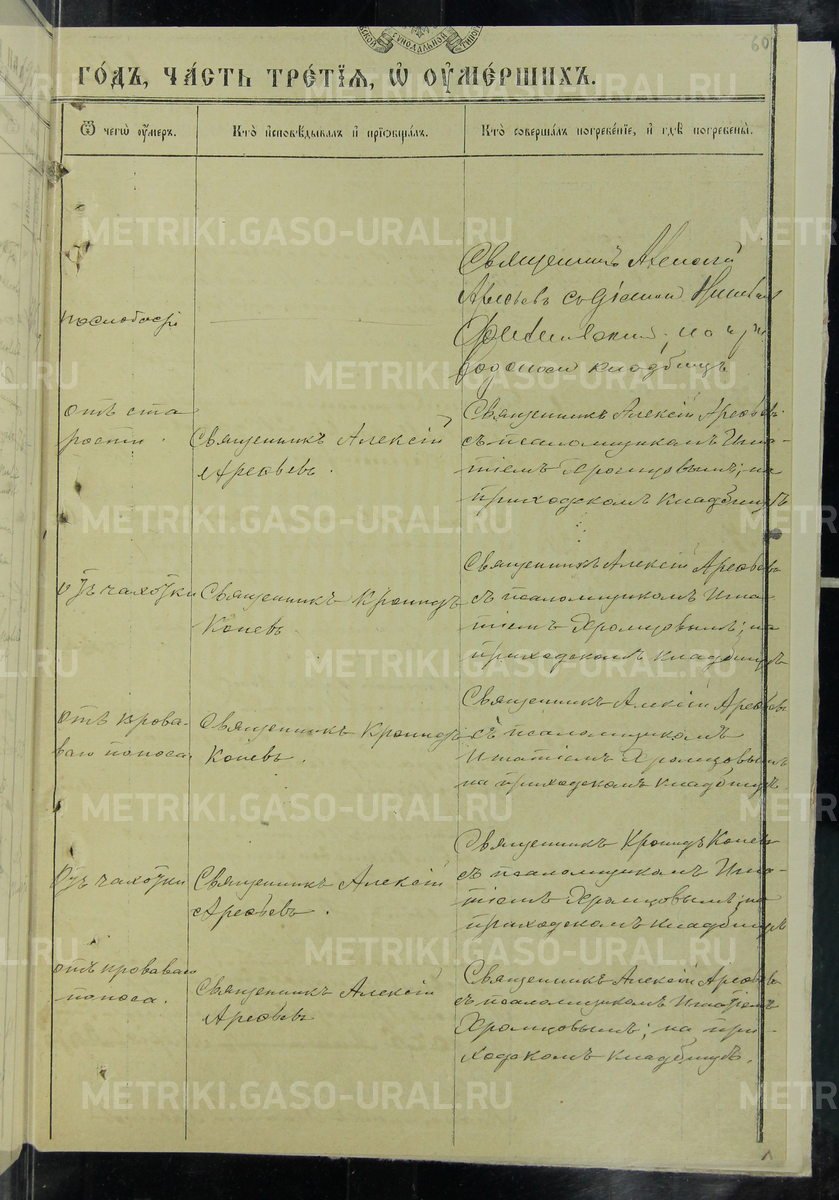 СѴНОДАЛЬНОЙ
60
ГО́ДЪ, ЧА́СТЬ ТРЕ́ТІѦ, Ѡ҆ ОУ҆МЕ́РШИХЪ.
Ѿ чегѡ̀ оу҆́меръ.
Кто̀ и҆сповѣ́дывалъ и҆ прїѡбща́лъ.
Кто̀ соверша́лъ погребе́нїе, и҆ гдѣ̀ погребены̀.
Священникъ Алексій
Арефьевъ съ діакон
по слабости
на при
ходском кладбищѣ
отъ ста
рости.
Священникъ Алексій
Арефьевъ.
Священникъ Алексій Арефьевъ
съ псаломщикомъ Игна-
тіемъ Хромцовымъ; на
приходскомъ кладбищѣ
отъ чахотки
Священникъ Кронидъ
Копевъ
Священникъ Алексій Арефьевъ
съ псаломщикомъ Игна
тіемъ Хромцовымъ; на
приходскомъ кладбищѣ
отъ крова-
ваго поноса
Священникъ Кронидъ
Копевъ.
Священникъ Алексій Арефьевъ
съ псаломщикомъ
Игнатіемъ Хромцовымъ
на приходскомъ кладбищѣ.
отъ чахотки
Священникъ Алексій
Арефьевъ.
Священникъ Кронидъ Копевъ
съ псаломщикомъ Игна-
тіемъ Хромцовымъ; на
приходскомъ кладбищѣ
отъ кроваваго
поноса.
Священникъ Алексій
Арефьевъ
Священникъ Алексій Арефьевъ
съ псаломщикомъ Игнатіемъ
Хромцовымъ; на при-
ходскомъ кладбищѣ.
METRIKI.GASO-URAL.RU
METRIKI.GASO-URAL.RU
METRIKI.GASO-URAL.RU
METRIKI.GASO-URAL.RU
METRIKI.GASO-URAL.RU
METRIKI.GASO-URAL.RU
METRIKI.GASO-URAL.RU